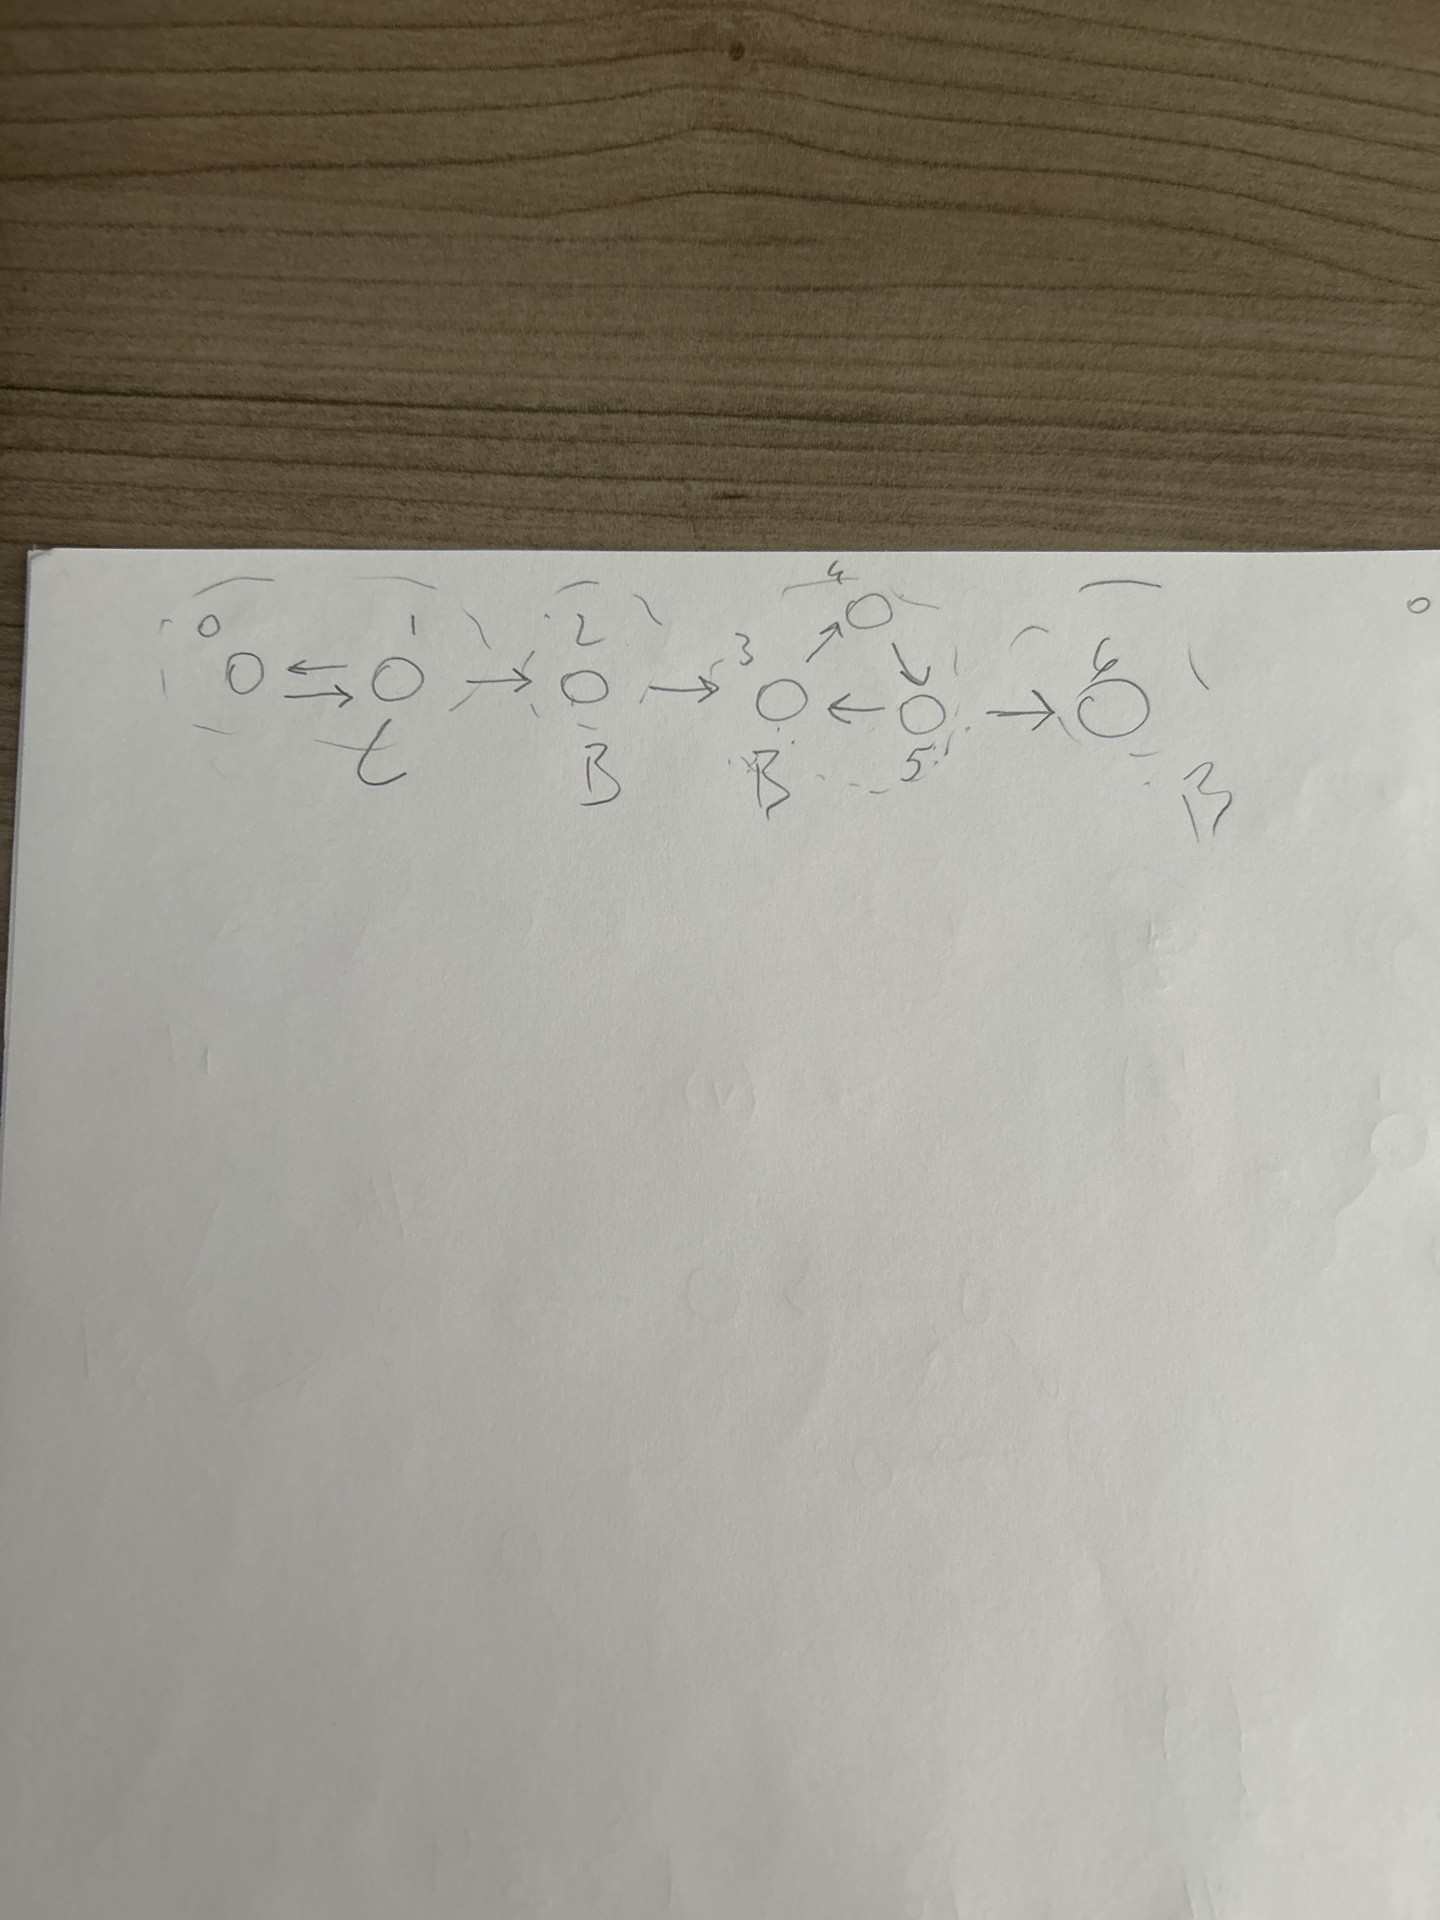 0 1 2 3 4 5 6
B B B